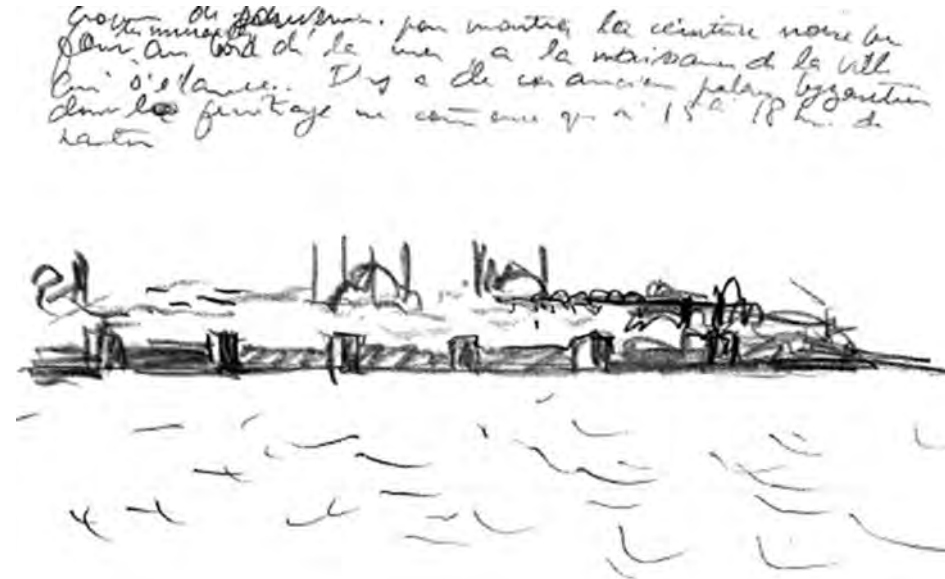 Croquis de souvenir. pour montrer la ceinture noire que
les murailles
font au bord de la mer à la naissance de la ville
qui s'élance. Il y a de ces anciens palais byzantins
dont le fenêtrage ne commence qu'à 15 à 18 m. de
hauteur